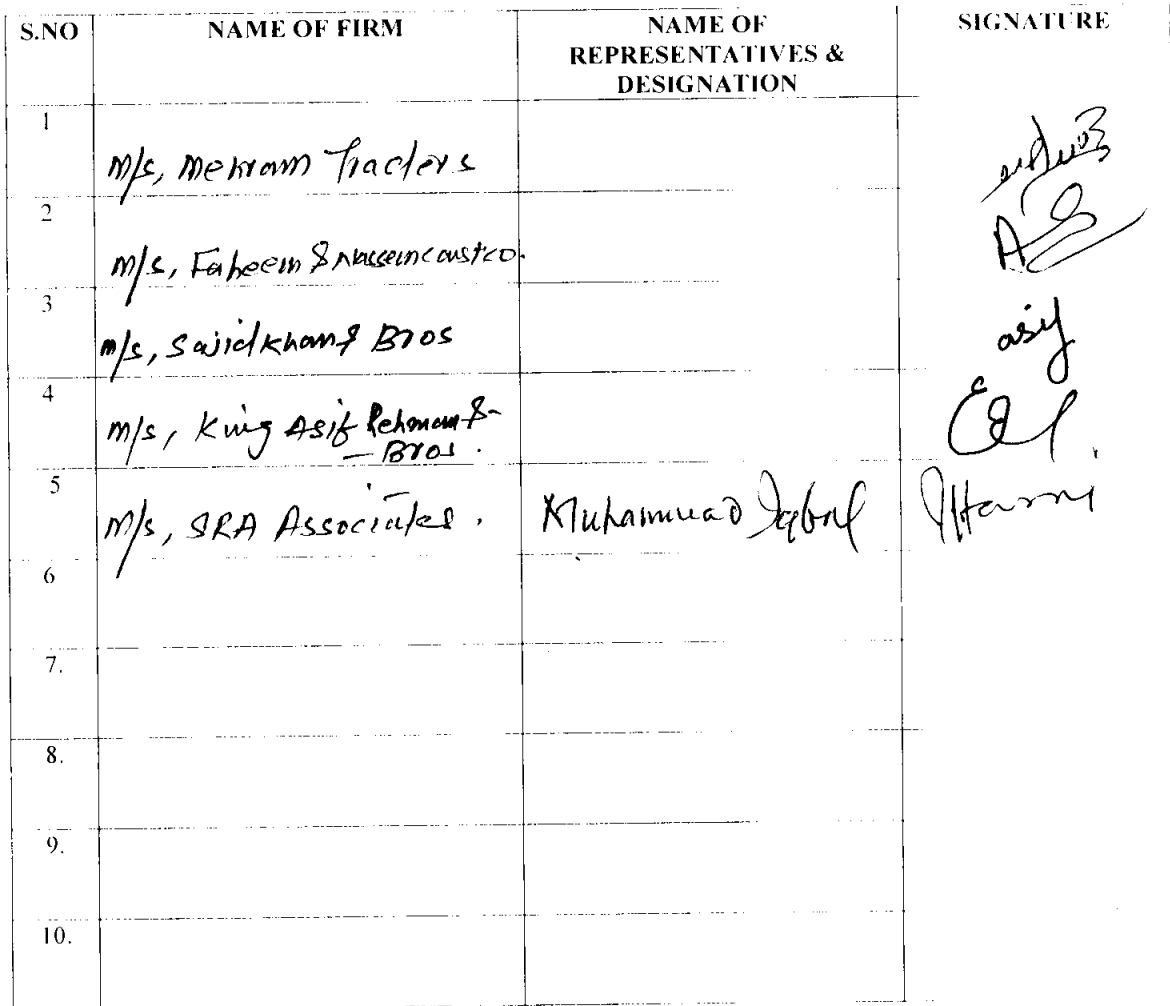 S.NO NAME OF FIRM NAME OF SIGNATURE
REPRESENTATIVES &
DESIGNATION
1
M/s, Mehram Traders
2
M/s, Faheem & Naseem const co.
3
M/s, Sajid Khan & Bros
4
M/s, King Asif Rehman &
- Bros.
5
M/s, SRA Associates. Muhammad Iqbal
asif
6
7.
8.
9.
10.